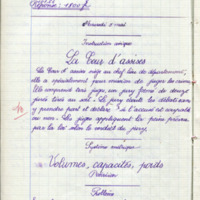 Réponse : 1800 f
Mercredi 5 mai
Instruction civique
La Cour d'assises
La Cour d'assises siège au chef-lieu de département,
elle a spécialement pour mission de juger les crimes
Elle comprend trois juges, un jury formé de douze
jurés tirés au sort. Le jury écoute les débats
prendre part et déclare si l'accusé est coupable
ou non. Les juges appliquent la peine prévue
par la loi selon le verdict du jury.
Système métrique
Volumes, capacités, poids
Révision
Problème